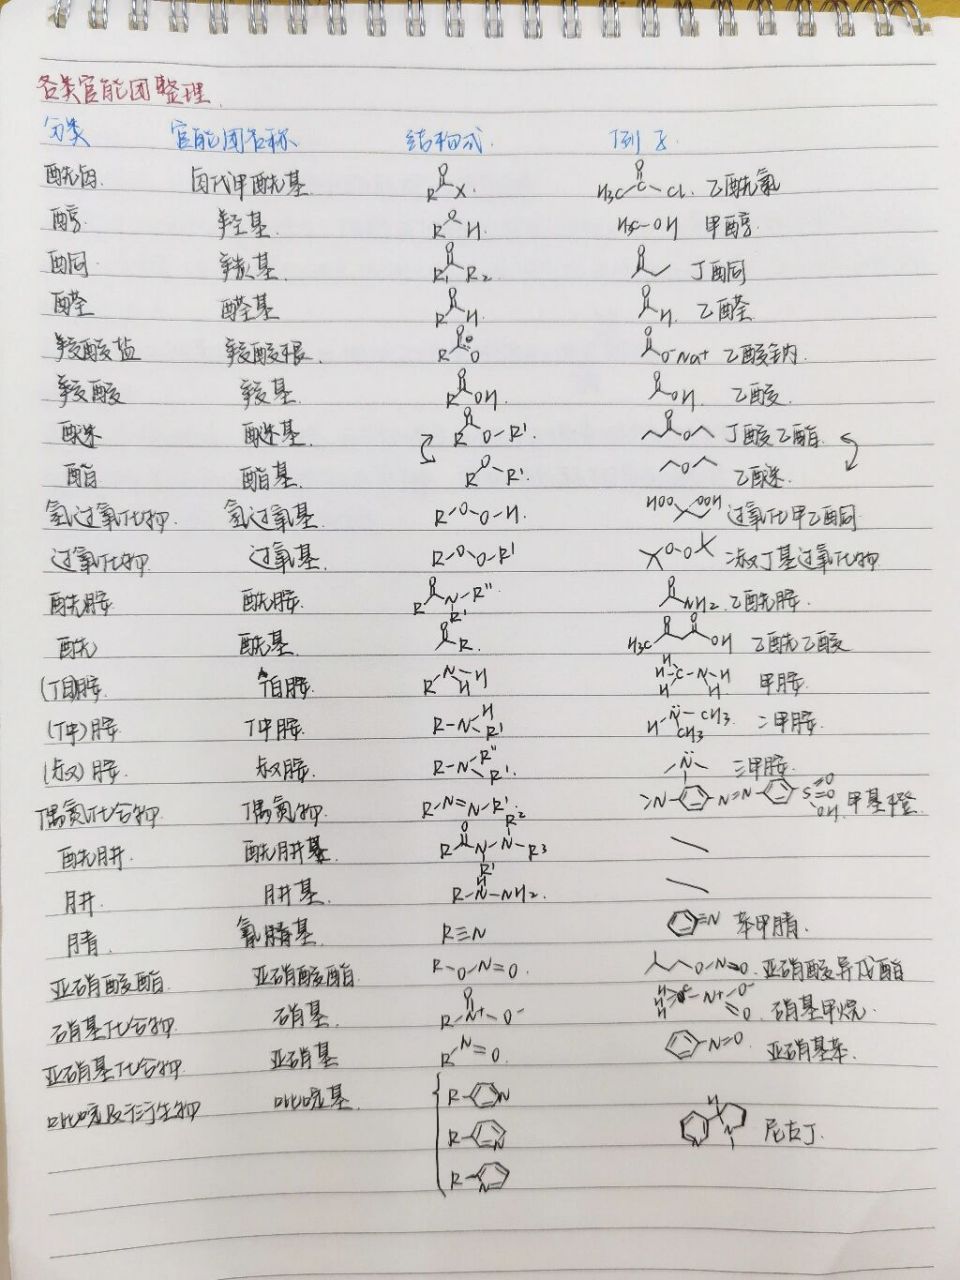 各类官能团整理
分类 官能团名称 结构式 例子
酰卤 卤代甲酰基 R O X H₃C O C Cl 乙酰氯
醇 羟基 R O H H₃C-OH 甲醇
酮 羰基 R₁ O R₂ O 丁酮
醛 醛基 R O H O H 乙醛
羧酸盐 羧酸根 R O O⊖ O O⁻Na⁺ 乙酸钠
羧酸 羧基 R O OH O OH 乙酸
醚 醚基 R O O-R' O O 丁酸乙酯
酯 酯基 R O R' O 乙醚
氢过氧化物 氢过氧基 R-O-O-H HOO OOH 过氧化甲乙酮
过氧化物 过氧基 R-O-O-R' O-O 二叔丁基过氧化物
酰胺 酰胺 R O N-R'' R' O NH₂ 乙酰胺
酰 酰基 O R H₃C O O OH 乙酰乙酸
(伯)胺 伯胺 R N-H H H H C-N-H H H 甲胺
(仲)胺 仲胺 R-N H R' H-N-CH₃ CH₃ 二甲胺
(叔)胺 叔胺 R-N R'' R' N 三甲胺
偶氮化合物 偶氮物 R-N=N-R' N N=N S=O O OH 甲基橙
酰肼 酰肼基 R O N R' N R² R³
肼 肼基 R-N H -NH₂
腈 氰腈基 R≡N ≡N 苯甲腈
亚硝酸酯 亚硝酸酯 R-O-N=O O-N=O 亚硝酸异戊酯
硝基化合物 硝基 R-N⁺ O -O⁻ H H C-N⁺-O⁻ =O 硝基甲烷
亚硝基化合物 亚硝基 R N=O -N=O 亚硝基苯
吡啶及衍生物 吡啶基 R- N H N N 尼古丁
R- N
R- N